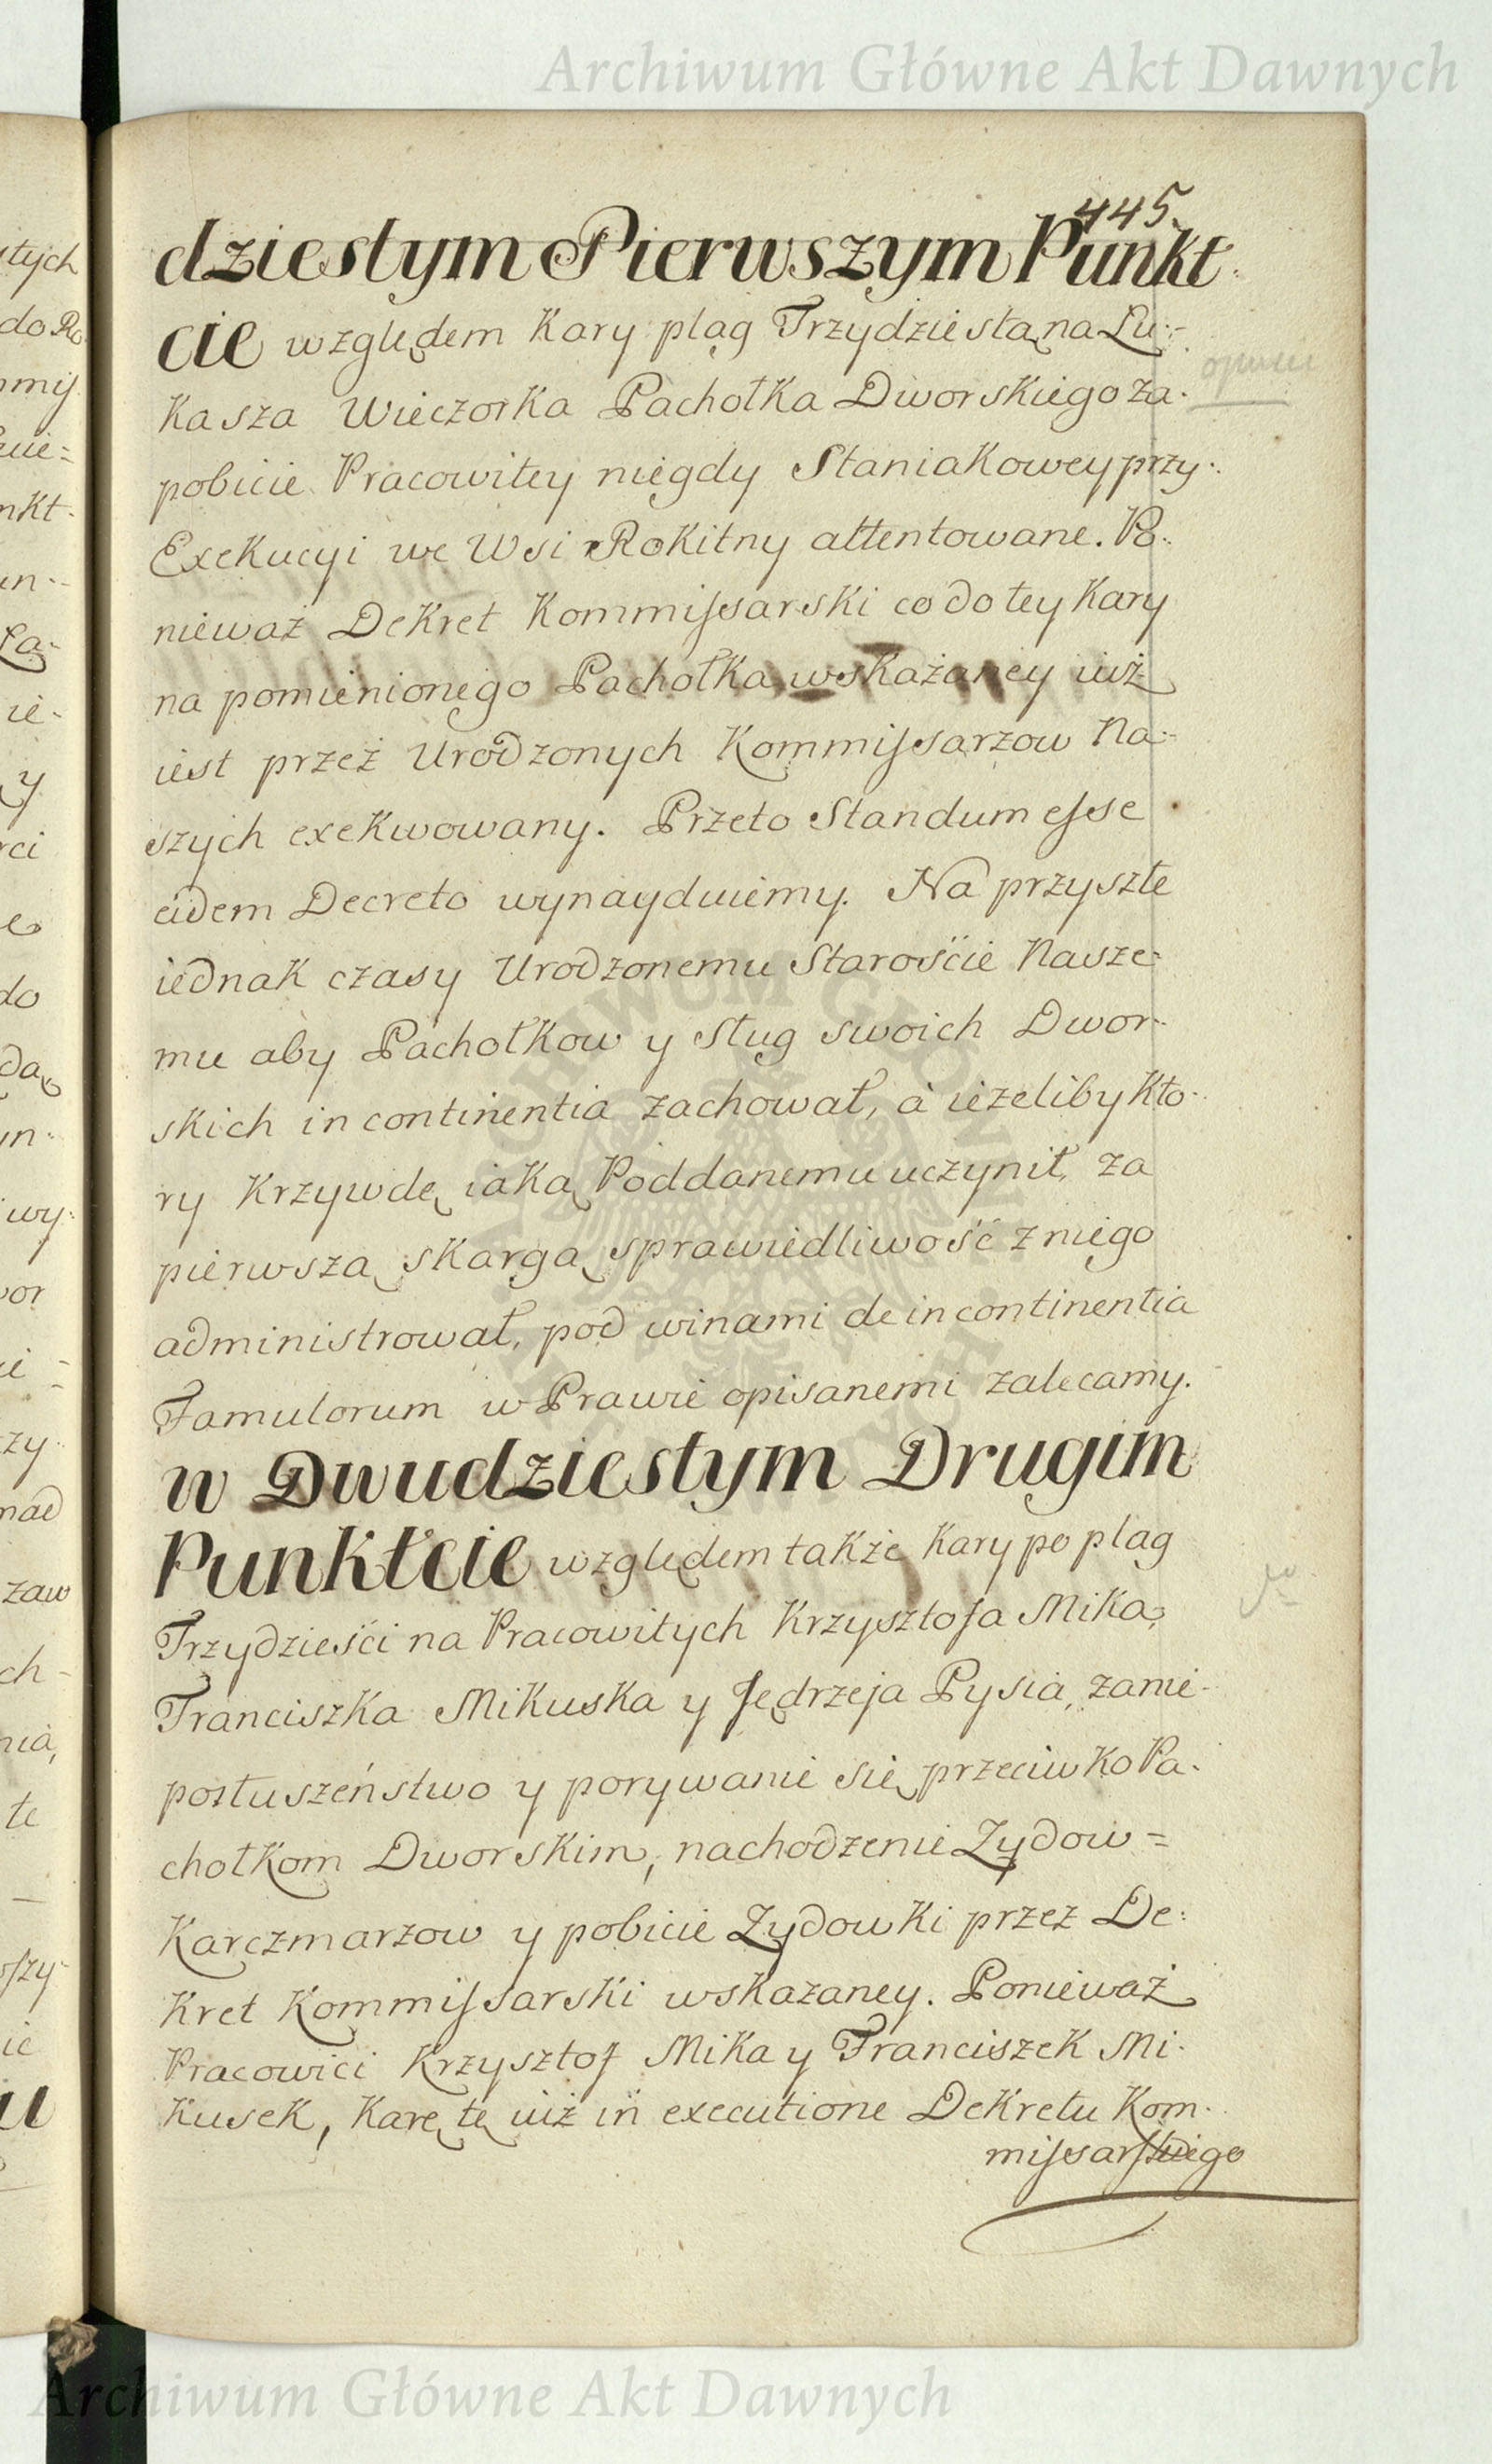 Archiwum Główne Akt Dawnych
445.
dziestym Pierwszym Punkt-
cie względem Kary plag Trzydziestą na Lu-
kasza Wieczorka Pachołka Dworskiego za
pobicie Pracowitey niegdy Staniakowey przy
Exekucyi we Wsi Rokitny attentowane. Po-
nieważ Dekret Kommissarski co do tey Kary
na pomienionego Pachołka wskażaney iuż
iest przeż Urodzonych Kommissarzow Na-
szych exekwowany. Przeto Standum esse
eidem Decreto wynayduiemy. Na przyszłe
iednak czasy Urodzonemu Starośćie Nasze-
mu aby Pachołkow y Sług swoich Dwor-
skich in continentia zachował, à ieżeliby kto-
ry Krzywdę iaką Poddanemu uczynił, za
pierwszą skargą sprawiedliwość z niego
administrował, pod winami de incontinentia
Famulorum w Prawie opisanemi zalecamy.
w Dwudziestym Drugim
Punktcie względem także Kary po plag
Trzydzieści na Pracowitych Krzysztofa Mika,
Franciszka Mikuska y Jędrzeja Pysia, za nie-
posłuszeństwo y porywanie się przeciwko Pa-
chołkom Dworskim, nachodzenie Zydow=
Karczmarzow y pobicie Zydowki przez De-
kret Kommissarski wskazaney. Ponieważ
Pracowici Krzysztof Mika y Franciszek Mi-
kusek, Karę tę iuż in executione Dekretu Kom-
missarskiego
Archiwum Główne Akt Dawnych